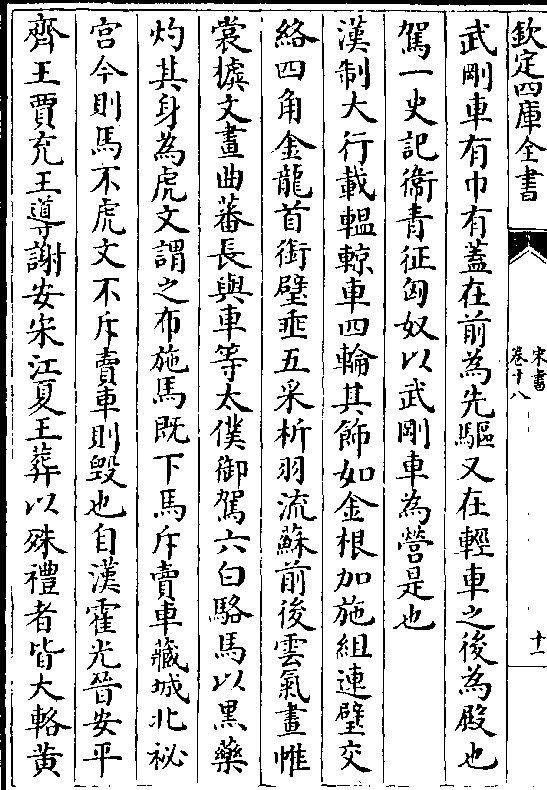 欽定四庫全書
宋書
卷十八
十一
武剛車有巾有蓋在前為先驅又在輕車之後為殿也
駕一史記衞青征匈奴以武剛車為營是也
漢制大行載轀輬車四輪其飾如金根加施組連璧交
絡四角金龍首銜璧垂五采析羽流蘇前後雲氣畫帷
裳櫎文畫曲蕃長與車等太僕御駕六白駱馬以黑藥
灼其身為虎文謂之布施馬既下馬斥賣車藏城北祕
宮今則馬不虎文不斥賣車則毁也自漢霍光晉安平
齊王賈充王導謝安宋江夏王葬以殊禮者皆大輅黄